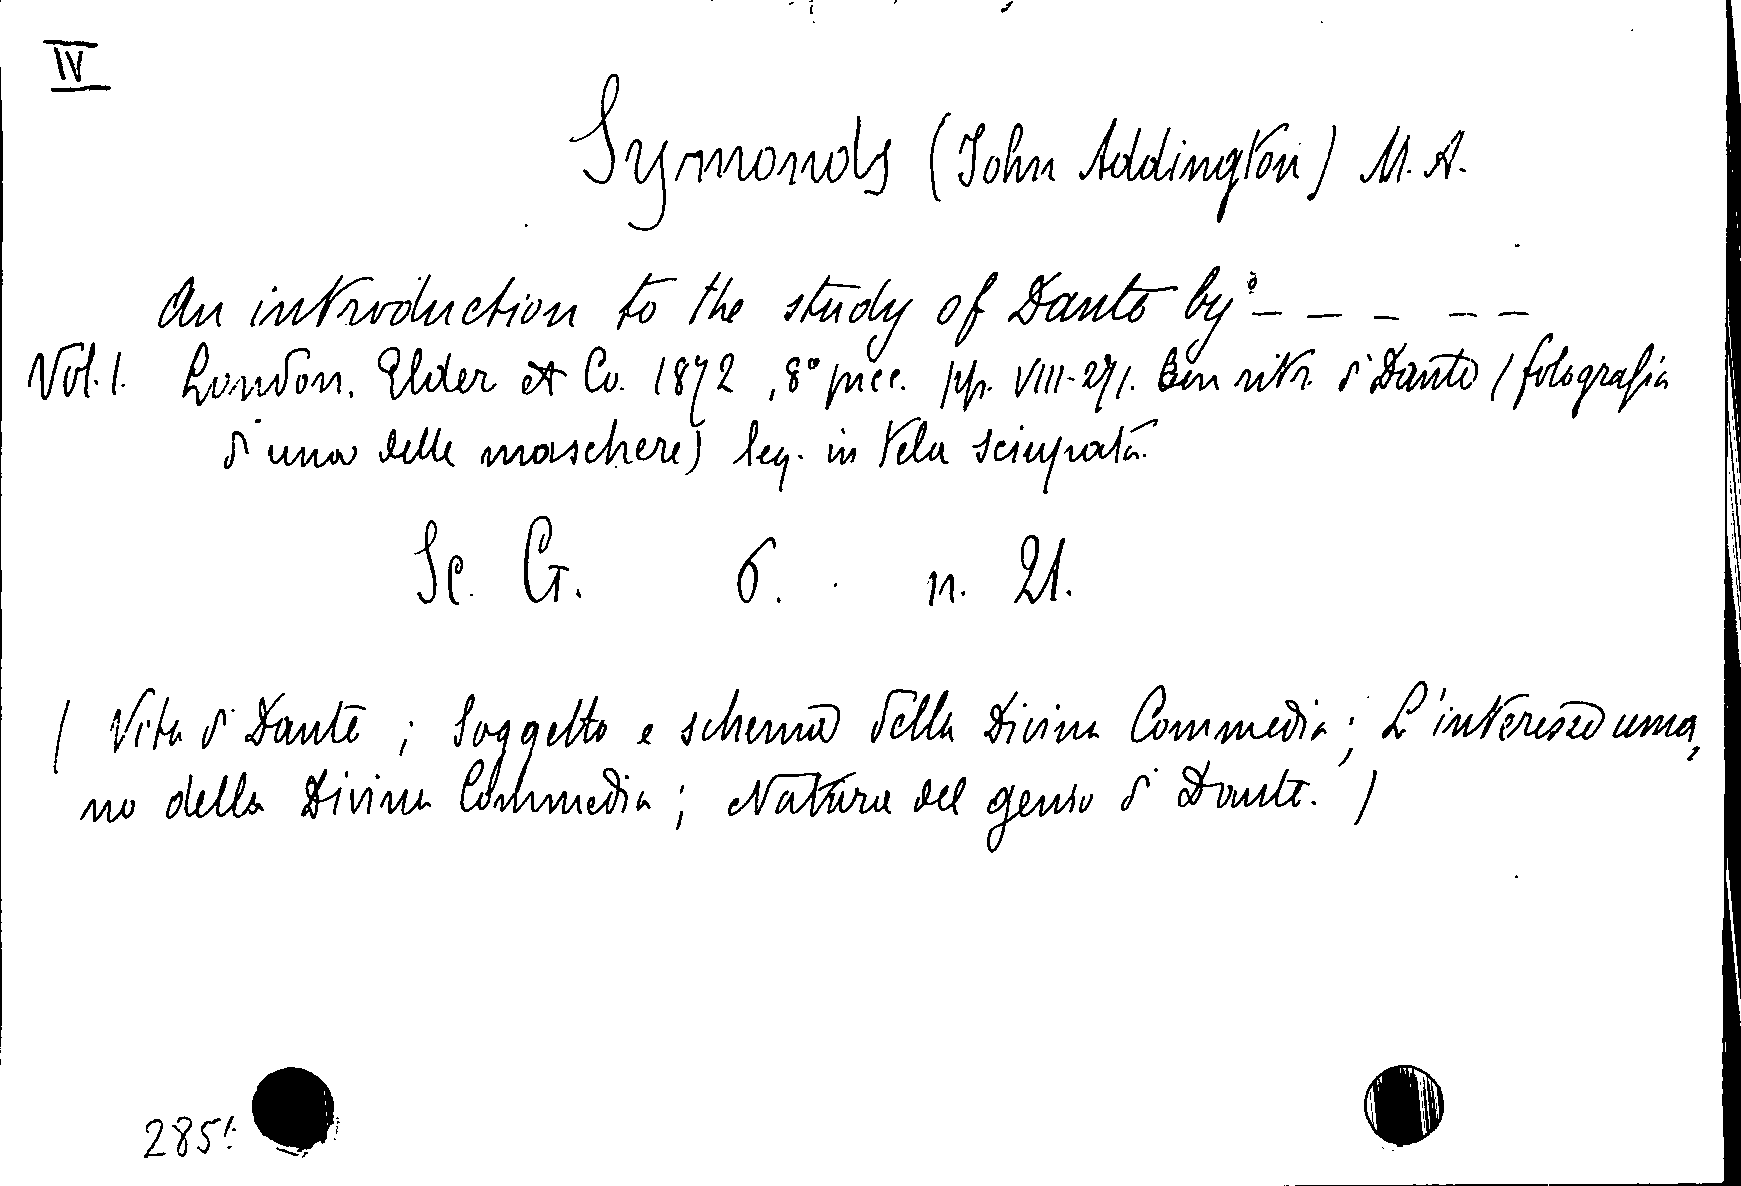 IV
Symonds (John Addington) M. A.
An introduction to the study of Dante by: _ _ _ _ _
Vol. 1. London. Elder et Co. 1872, 8° picc. pp. VIII-271. Con ritr. di Dante (fotografia
di una delle maschere) leg. in tela sciupata.
Sc. G. 6. n. 21.
( Vita di Dante ; Soggetto e schema della Divina Commedia ; L'interesse uma,
no della Divina Commedia ; Natura del genio di Dante. )